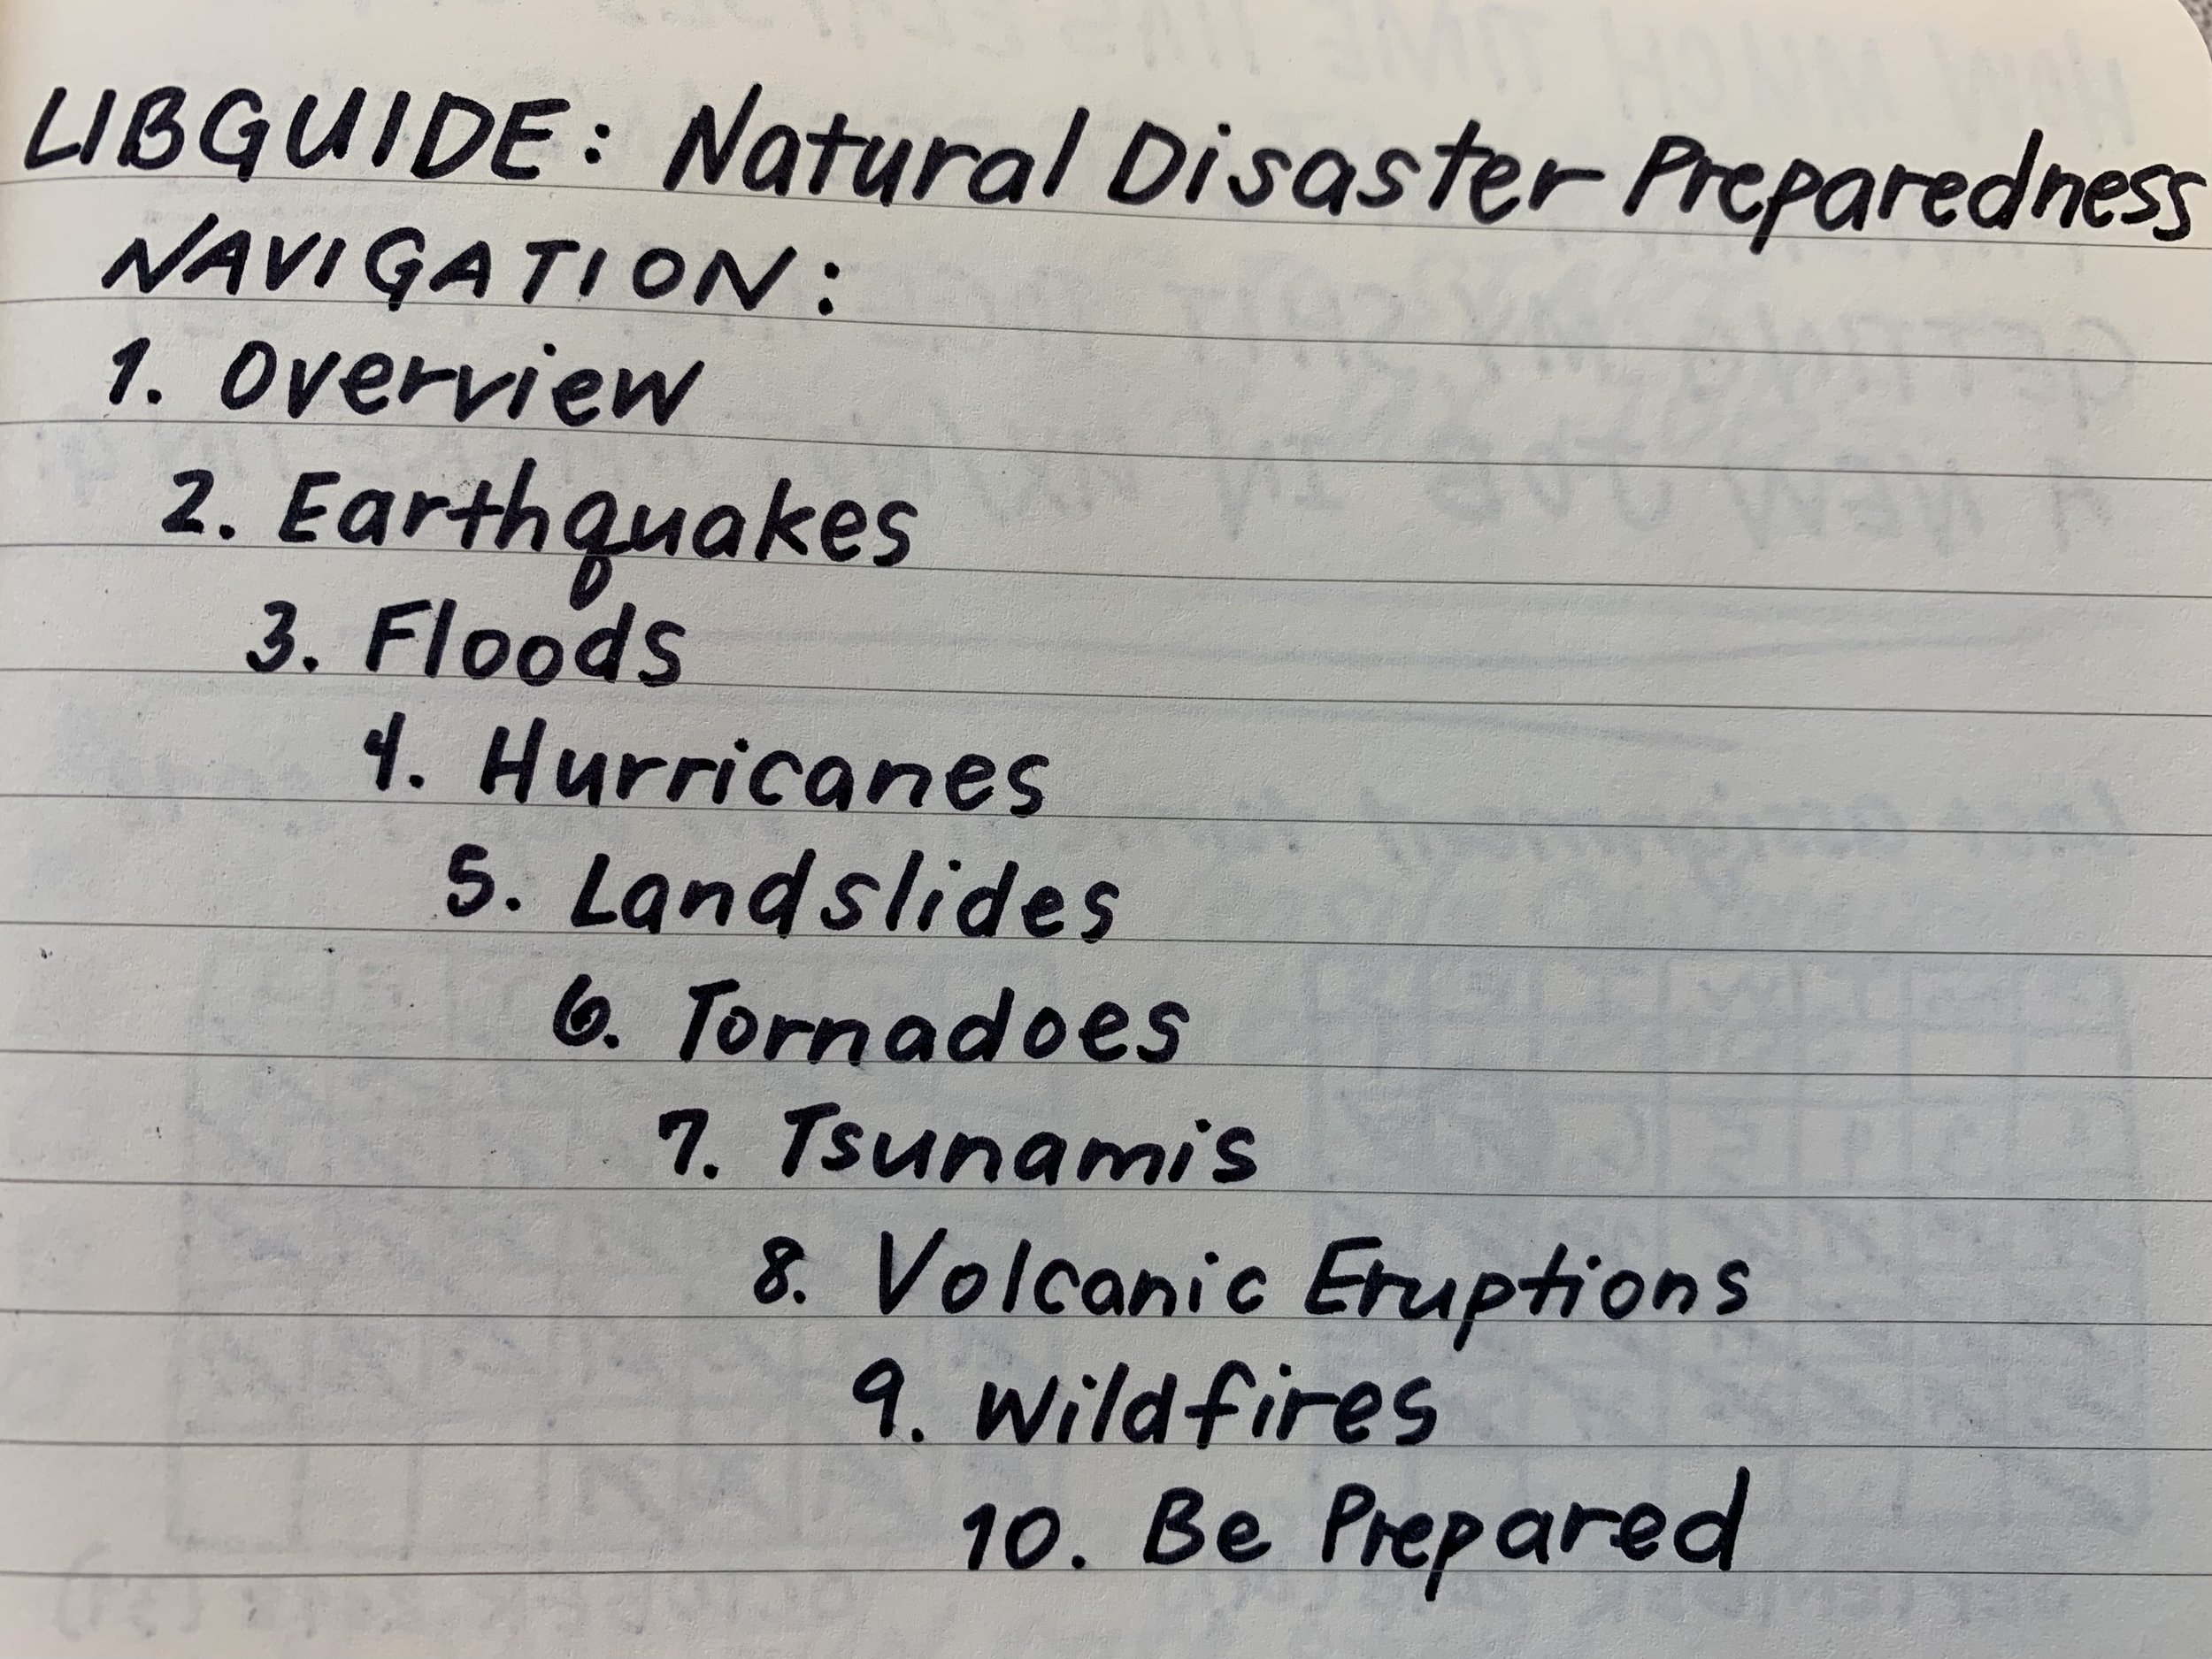 LIBGUIDE: Natural Disaster Preparedness
NAVIGATION:
1. Overview
2. Earthquakes
3. Floods
4. Hurricanes
5. Landslides
6. Tornadoes
7. Tsunamis
8. Volcanic Eruptions
9. Wildfires
10. Be Prepared